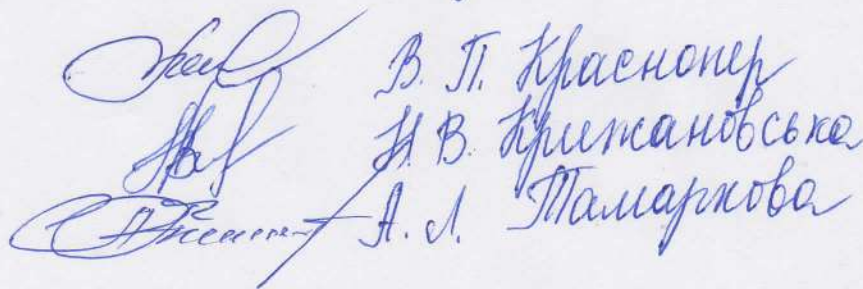 В. П. Краснопер
Н. В. Крижановська
А. Л. Тамаркова